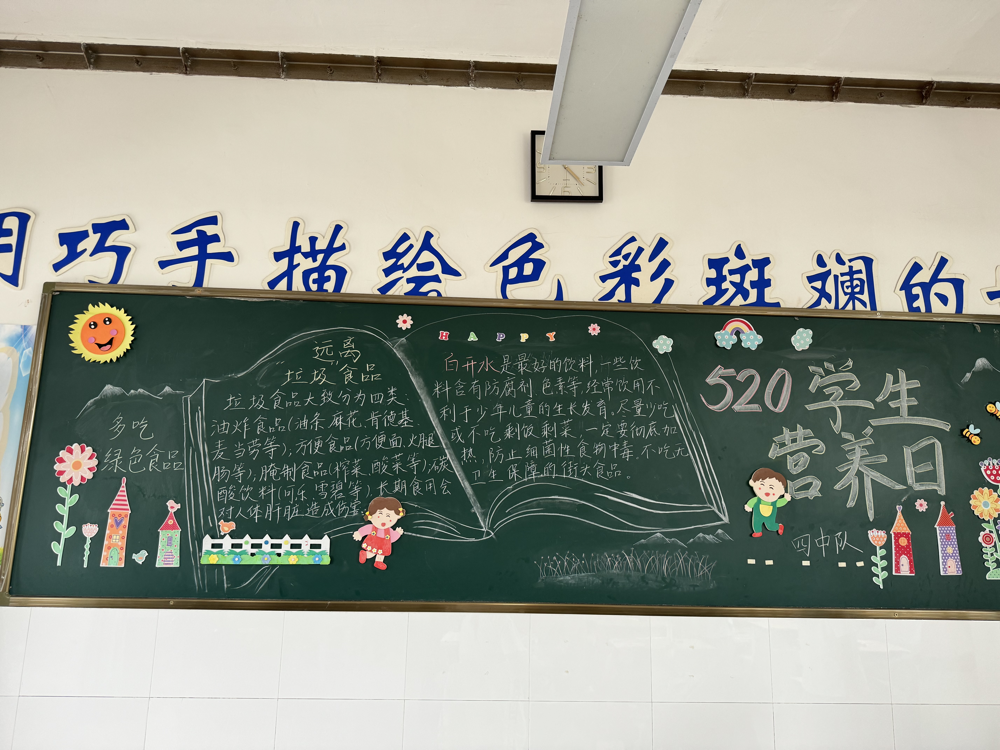 用巧手描绘色彩斑斓的
HAPPY
多吃
绿色食品
远离
垃圾食品
垃圾食品大致分为四类、
油炸食品(油条 麻花、肯德基
麦当劳等),方便食品(方便面、火腿
肠等),腌制食品(榨菜、酸菜等),碳
酸饮料(可乐、雪碧等)长期食用会
对人体肝脏造成伤害。
白开水是最好的饮料,一些饮
料含有防腐剂、色素等,经常饮用不
利于少年儿童的生长发育,尽量少吃
或不吃剩饭剩菜,一定要彻底加
热,防止细菌性食物中毒,不吃无
卫生保障的街头食品。
520学生
营养日
四中队